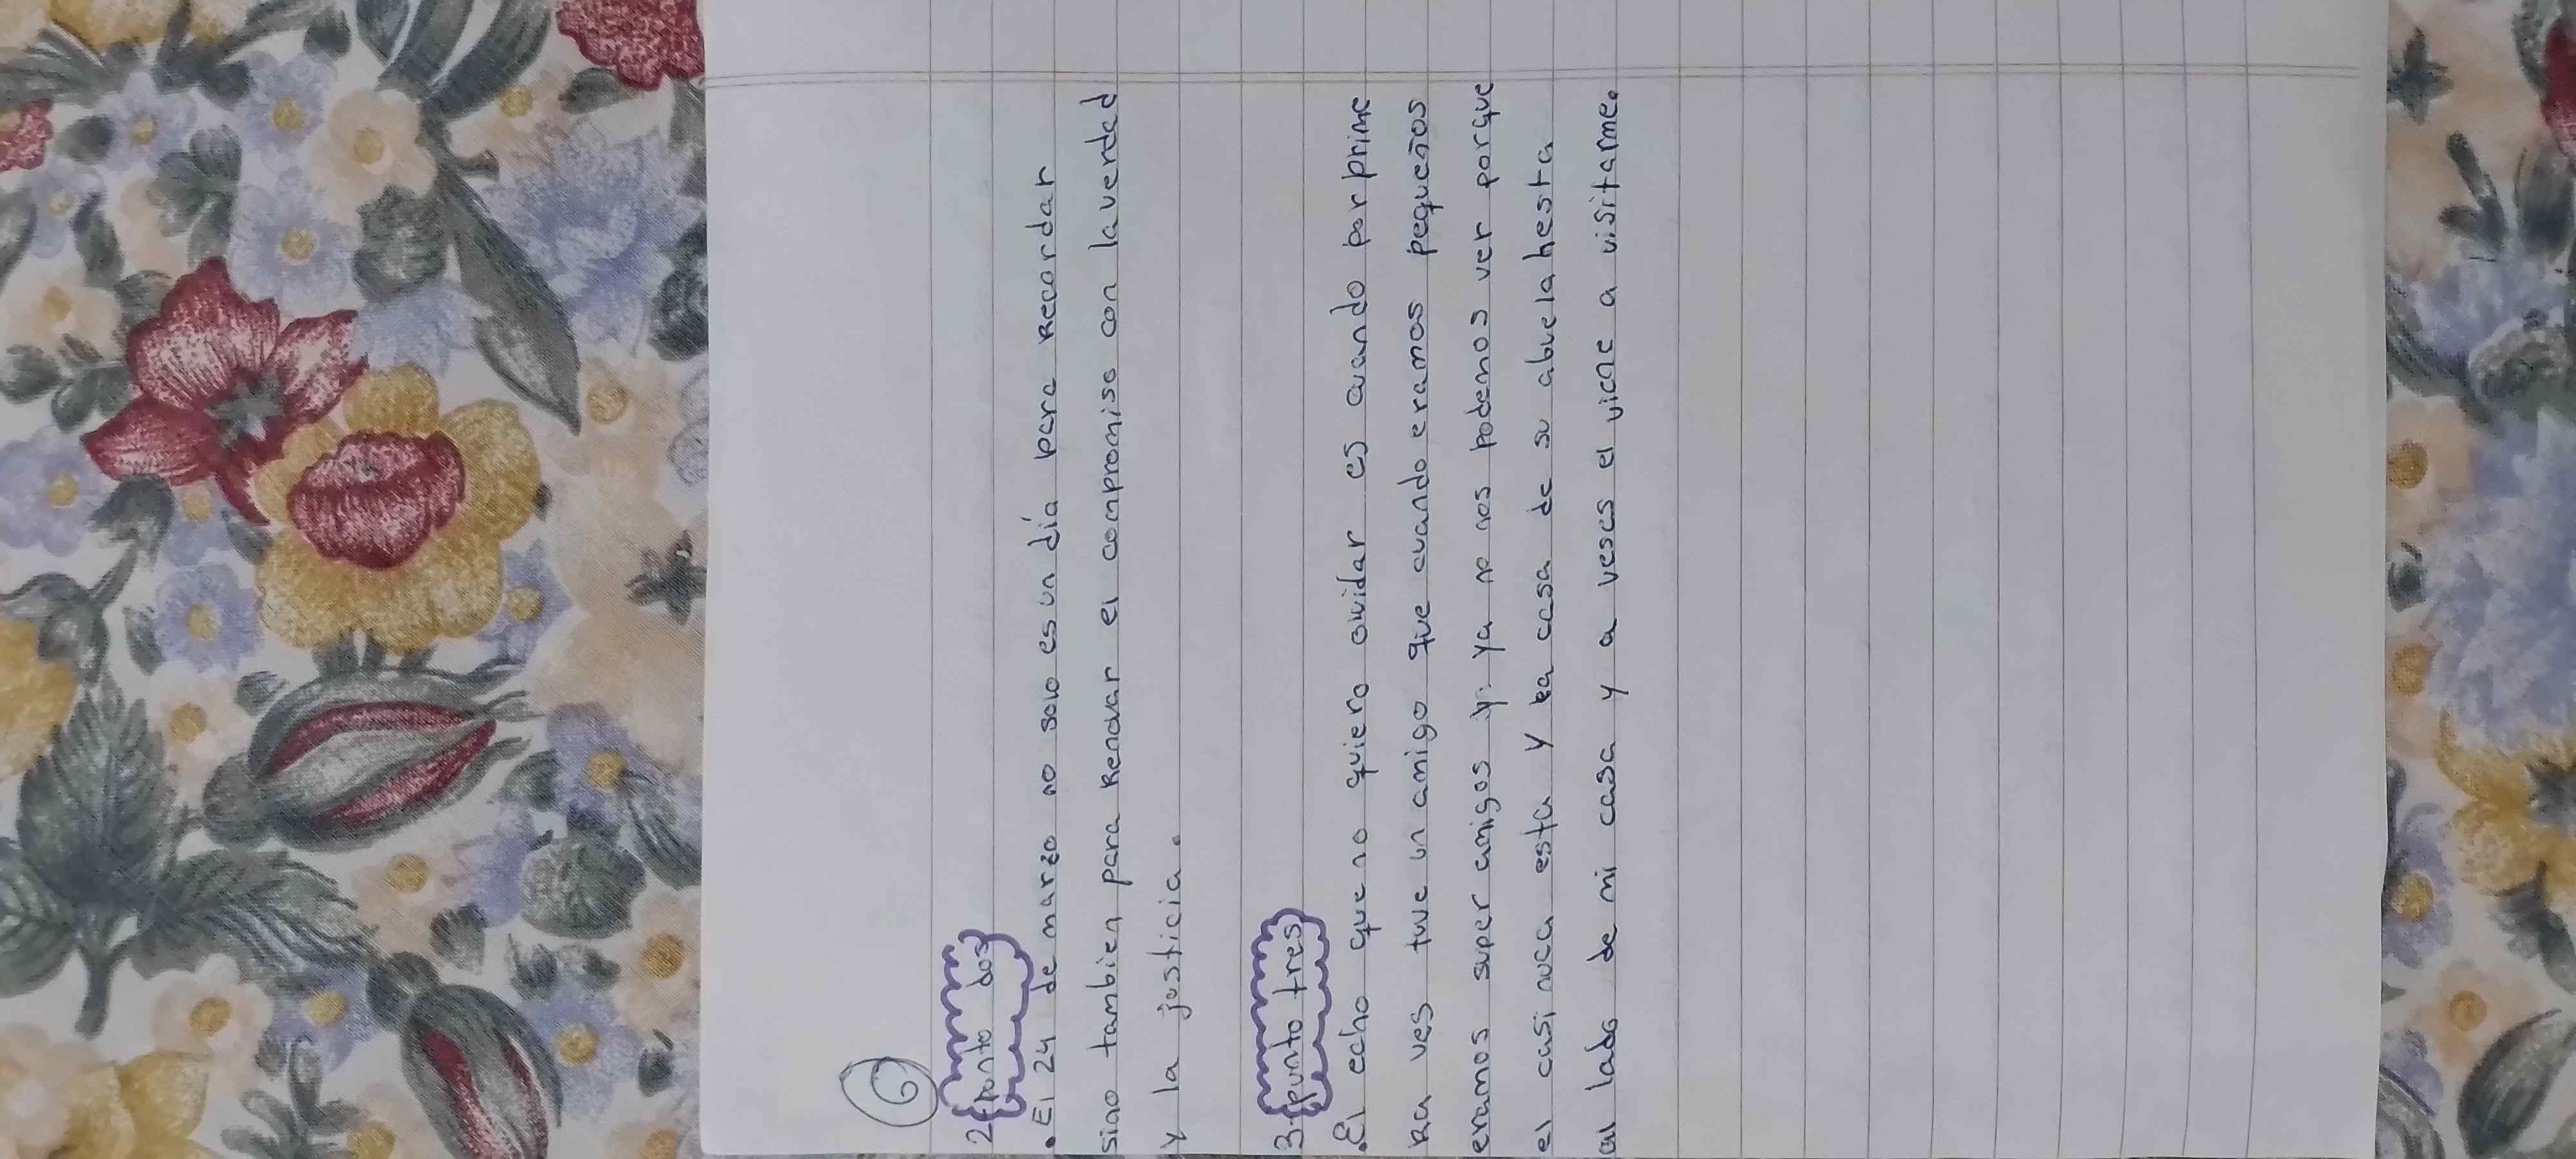 6
2-punto dos
.El 24 de marzo no solo es un día para recordar
sino tambien para Renovar el compromiso con la verdad
y la justicia.
3-punto tres
.El echo que no quiero olvidar es cuando por prime
Ra ves tuve un amigo que cuando eramos pequeños
eramos super amigos y ya no nos podemos ver porque
el casi nuca esta y la casa de su abuela hesta
al lado de mi casa y a veses el viene a visitarme.